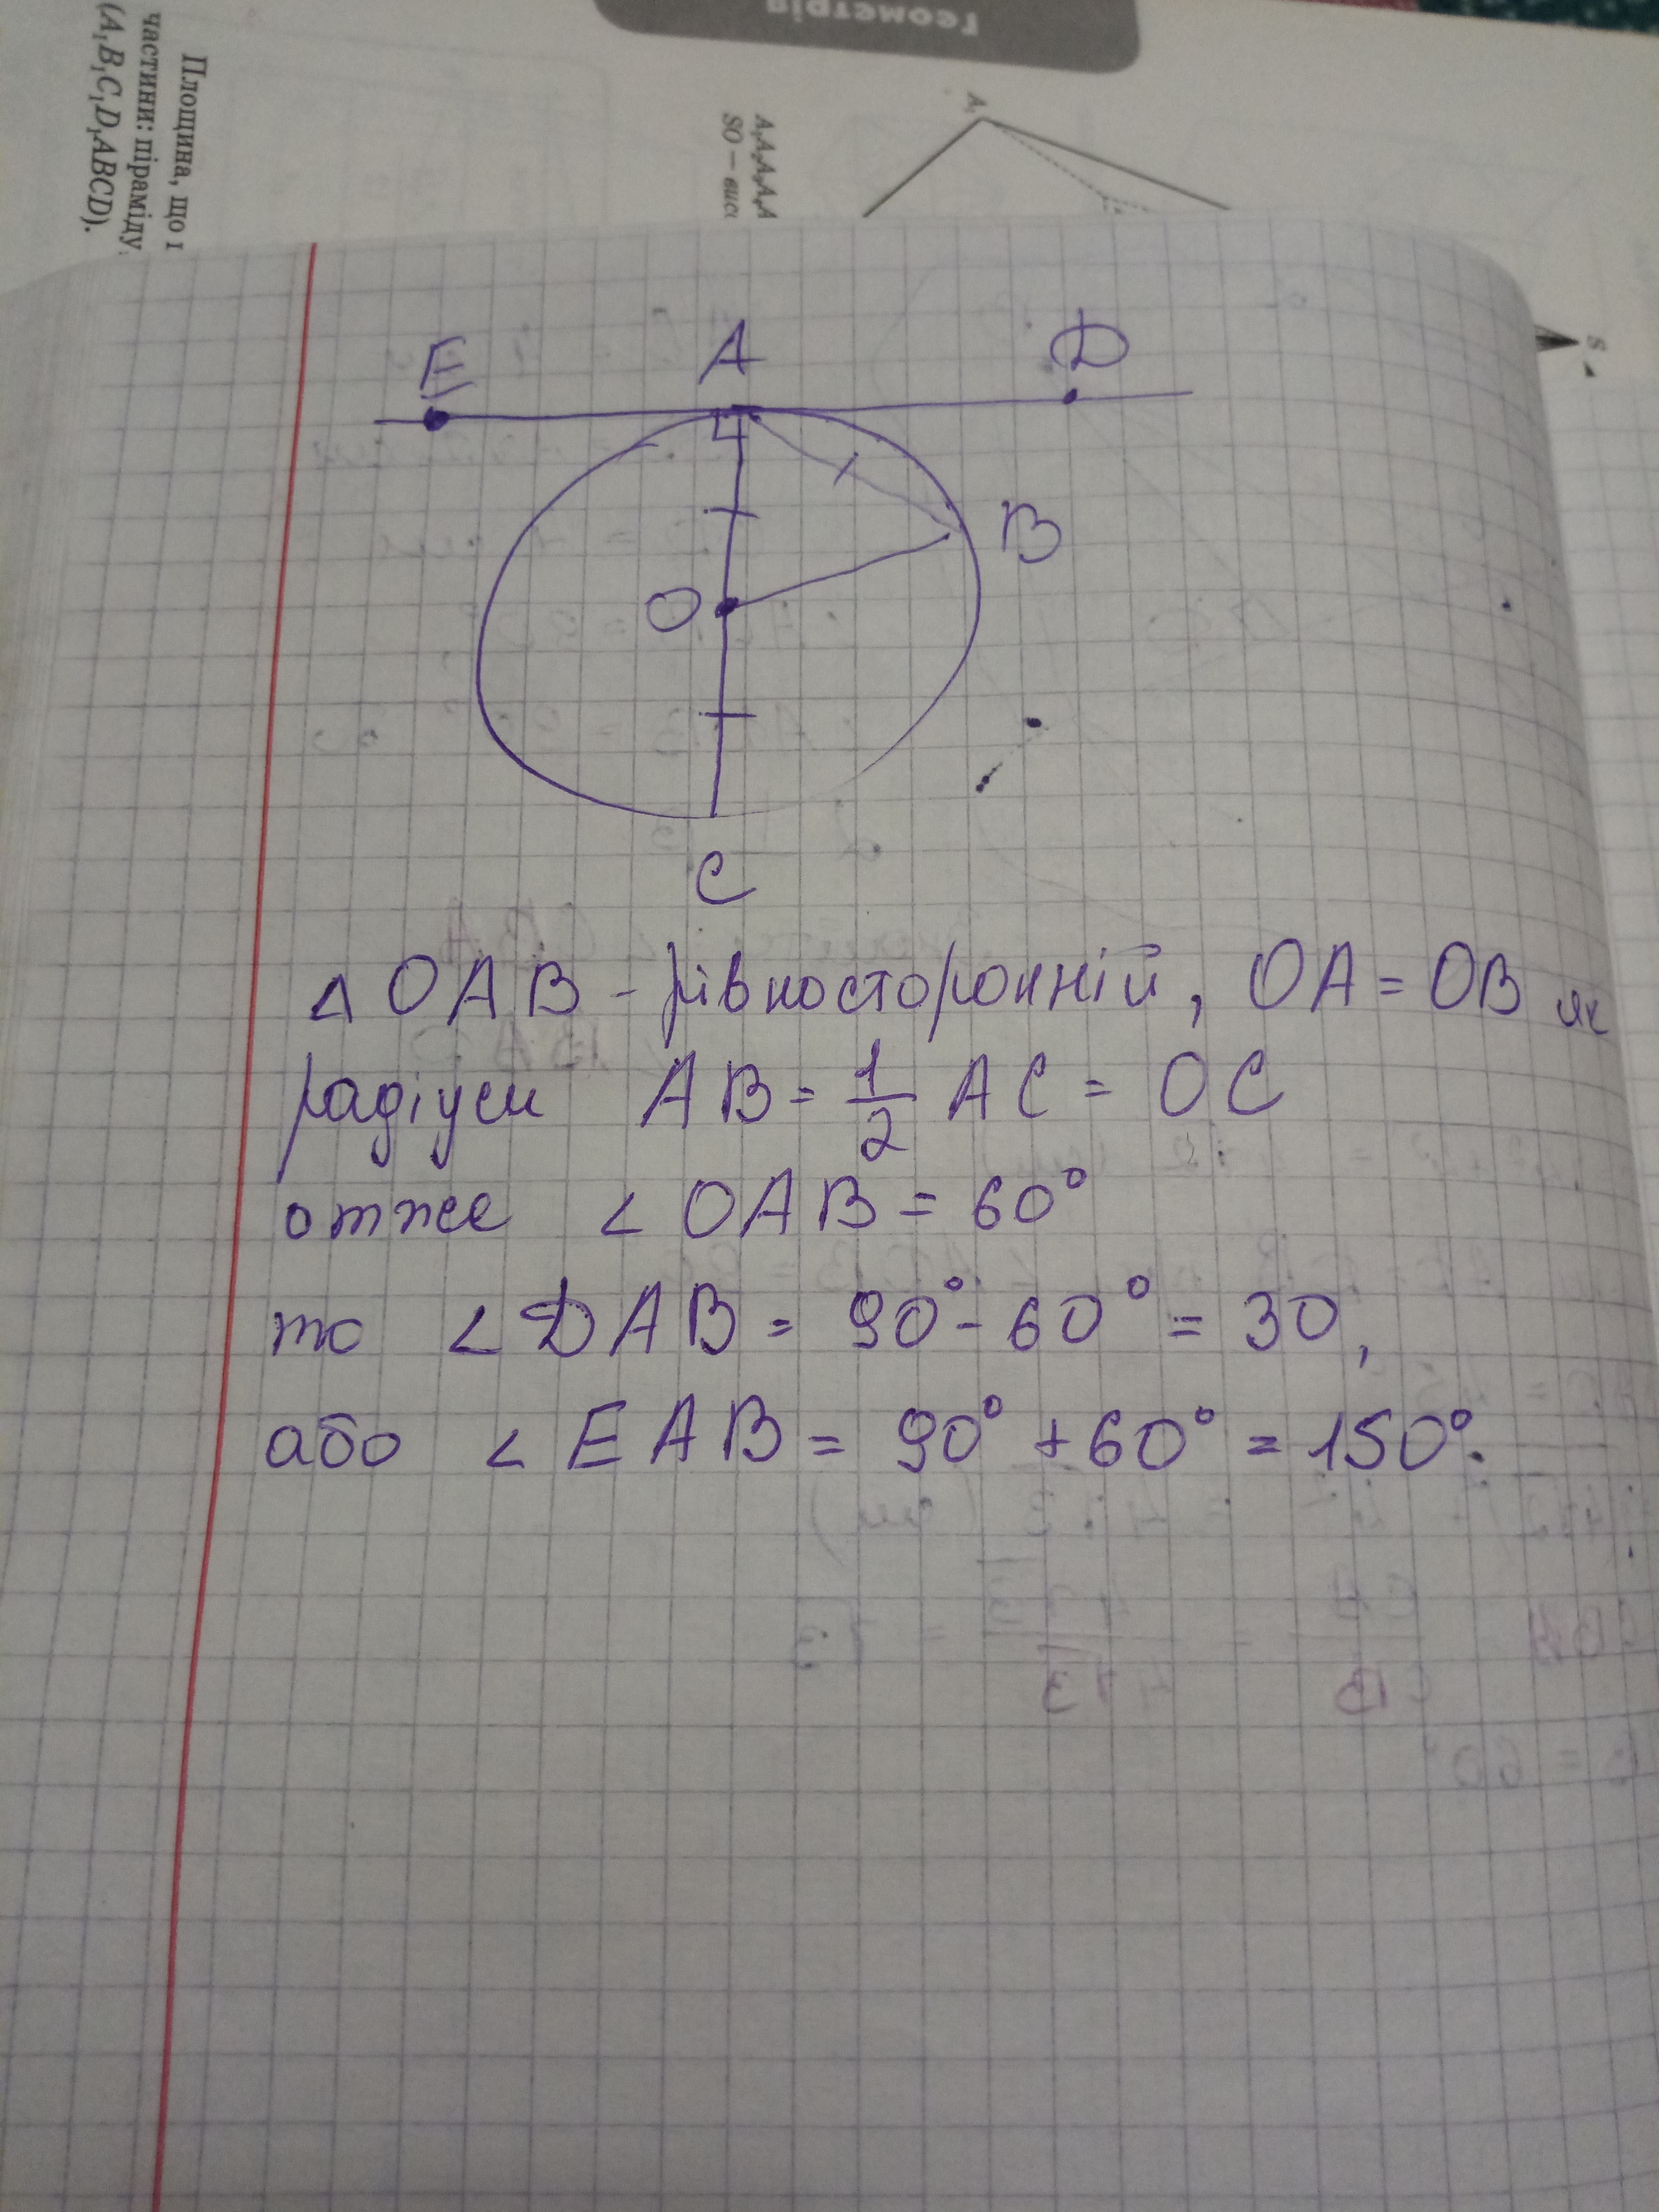 Геометрія
Площина, що
частини: піраміду
(A₁B₁C₁D₁ABCD).
A₁A₂A₃A₄A
SO — вис
A₁
S
E A D
B
O
C
Δ OAB - рівносторонній, OA = OB як
радіуси AB = 1/2 AC = OC
отже ∠ OAB = 60°
то ∠ DAB = 90° - 60° = 30,
або ∠ EAB = 90° + 60° = 150°.